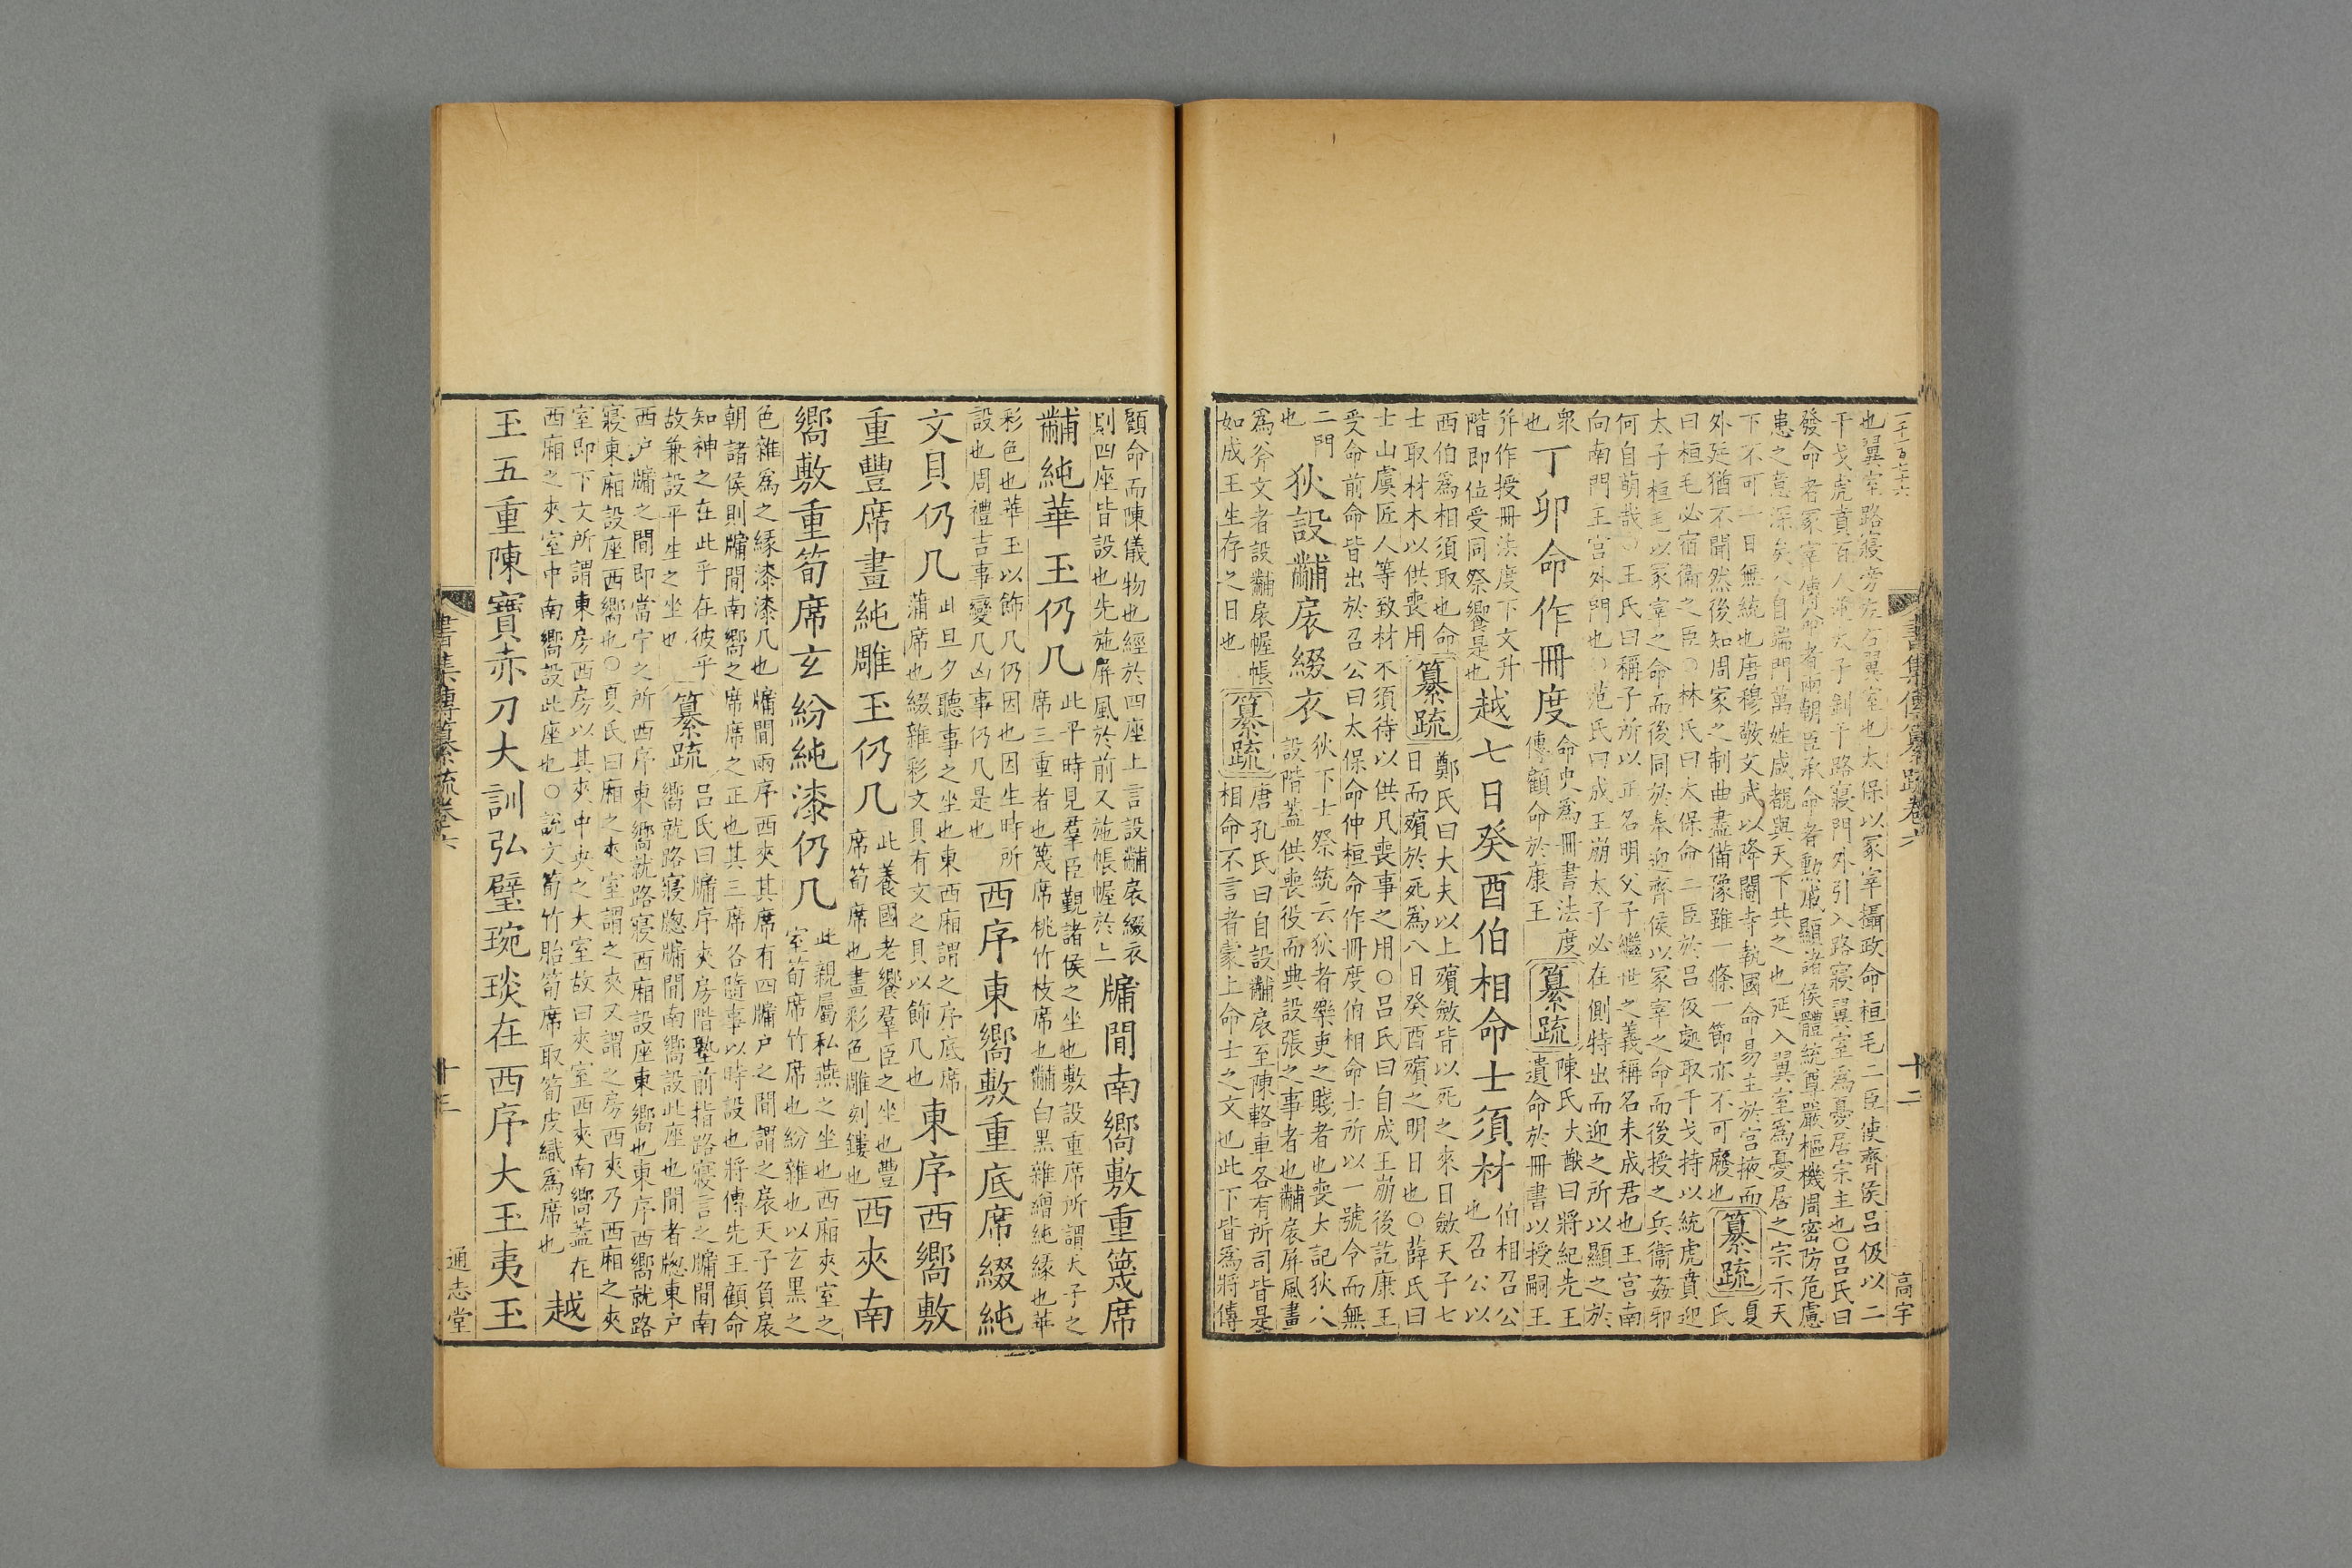 二千一百七十六
書集傳纂疏卷六
十二
高字
也翼室路寢旁左右翼室也太保以冢宰攝政命桓毛二臣使齊侯呂伋以二
干戈虎賁百人逆太子釗于路寢門外引入路寢翼室為憂居宗主也○呂氏曰
發命者冢宰傳命者兩朝臣承命者勳戚顯諸侯體統尊嚴樞機周密防危慮
患之意深矣入自端門萬姓咸覩與天下共之也延入翼室為憂居之宗示天
下不可一日無統也唐穆敬文武以降閹寺執國命易主於宮掖而
外廷猶不聞然後知周家之制曲盡備豫雖一條一節亦不可廢也
纂疏
夏
氏
曰桓毛必宿衞之臣○林氏曰太保命二臣於呂伋逆取干戈持以統虎賁迎
太子桓毛以冢宰之命而後同於奉迎齊侯以冢宰之命而後授之兵衞姦邪
何自萌哉○王氏曰稱子所以正名明父子繼世之義稱名未成君也王宮南
向南門王宮外門也○范氏曰成王崩太子必在側特出而迎之所以顯之於
衆
也
丁卯命作冊度
命史為冊書法度
傳顧命於康王
纂疏
陳氏大猷曰將紀先王
遺命於冊書以授嗣王
并作授冊法度下文升
階即位受同祭饗是也
越七日癸酉伯相命士須材
伯相召公
也召公以
西伯為相須取也命
士取材木以供喪用
纂疏
鄭氏曰大夫以上殯斂皆以死之來日斂天子七
日而殯於死為八日癸酉殯之明日也○薛氏曰
士山虞匠人等致材不須待以供凡喪事之用○呂氏曰自成王崩後訖康王
受命前命皆出於召公曰太保命仲桓命作冊度伯相命士所以一號令而無
二門
也
狄設黼扆綴衣
狄下士祭統云狄者樂吏之賤者也喪大記狄人
設階蓋供喪役而典設張之事者也黼扆屏風畫
為斧文者設黼扆幄帳
如成王生存之日也
纂疏
唐孔氏曰自設黼扆至陳輅車各有所司皆是
相命不言者蒙上命士之文也此下皆為將傳
顧命而陳儀物也經於四座上言設黼扆綴衣
則四座皆設也先施屏風於前又施帳幄於上
牖間南嚮敷重篾席
黼純華玉仍几
此平時見羣臣覲諸侯之坐也敷設重席所謂天子之
席三重者也篾席桃竹枝席也黼白黑雜繒純緣也華
彩色也華玉以飾几仍因也因生時所
設也周禮吉事變几凶事仍几是也
西序東嚮敷重底席綴純
文貝仍几
此旦夕聽事之坐也東西廂謂之序底席
蒲席也綴雜彩文貝有文之貝以飾几也
東序西嚮敷
重豐席畫純雕玉仍几
此養國老饗羣臣之坐也豐
席筍席也畫彩色雕刻鏤也
西夾南
嚮敷重筍席玄紛純漆仍几
此親屬私燕之坐也西廂夾室之
室筍席竹席也紛雜也以玄黑之
色雜為之緣漆漆几也牖間兩序西夾其席有四牖戶之間謂之扆天子負扆
朝諸侯則牖間南嚮之席席之正也其三席各隨事以時設也將傳先王顧命
知神之在此乎在彼乎
故兼設平生之坐也
纂疏
呂氏曰牖序夾房階塾前指路寢言之牖間南
嚮就路寢牎牖間南嚮設此座也間者牎東戶
西戶牖之間即當宁之所西序東嚮就路寢西廂設座東嚮也東序西嚮就路
寢東廂設座西嚮也○夏氏曰廂之夾室謂之夾又謂之房西夾乃西廂之夾
室即下文所謂東房西房以其夾中央之大室故曰夾室西夾南嚮蓋在
西廂之夾室中南嚮設此座也○說文筍竹胎筍席取筍皮織為席也
越
玉五重陳寶赤刀大訓弘璧琬琰在西序大玉夷玉
書集傳纂疏卷六
十三
通志堂